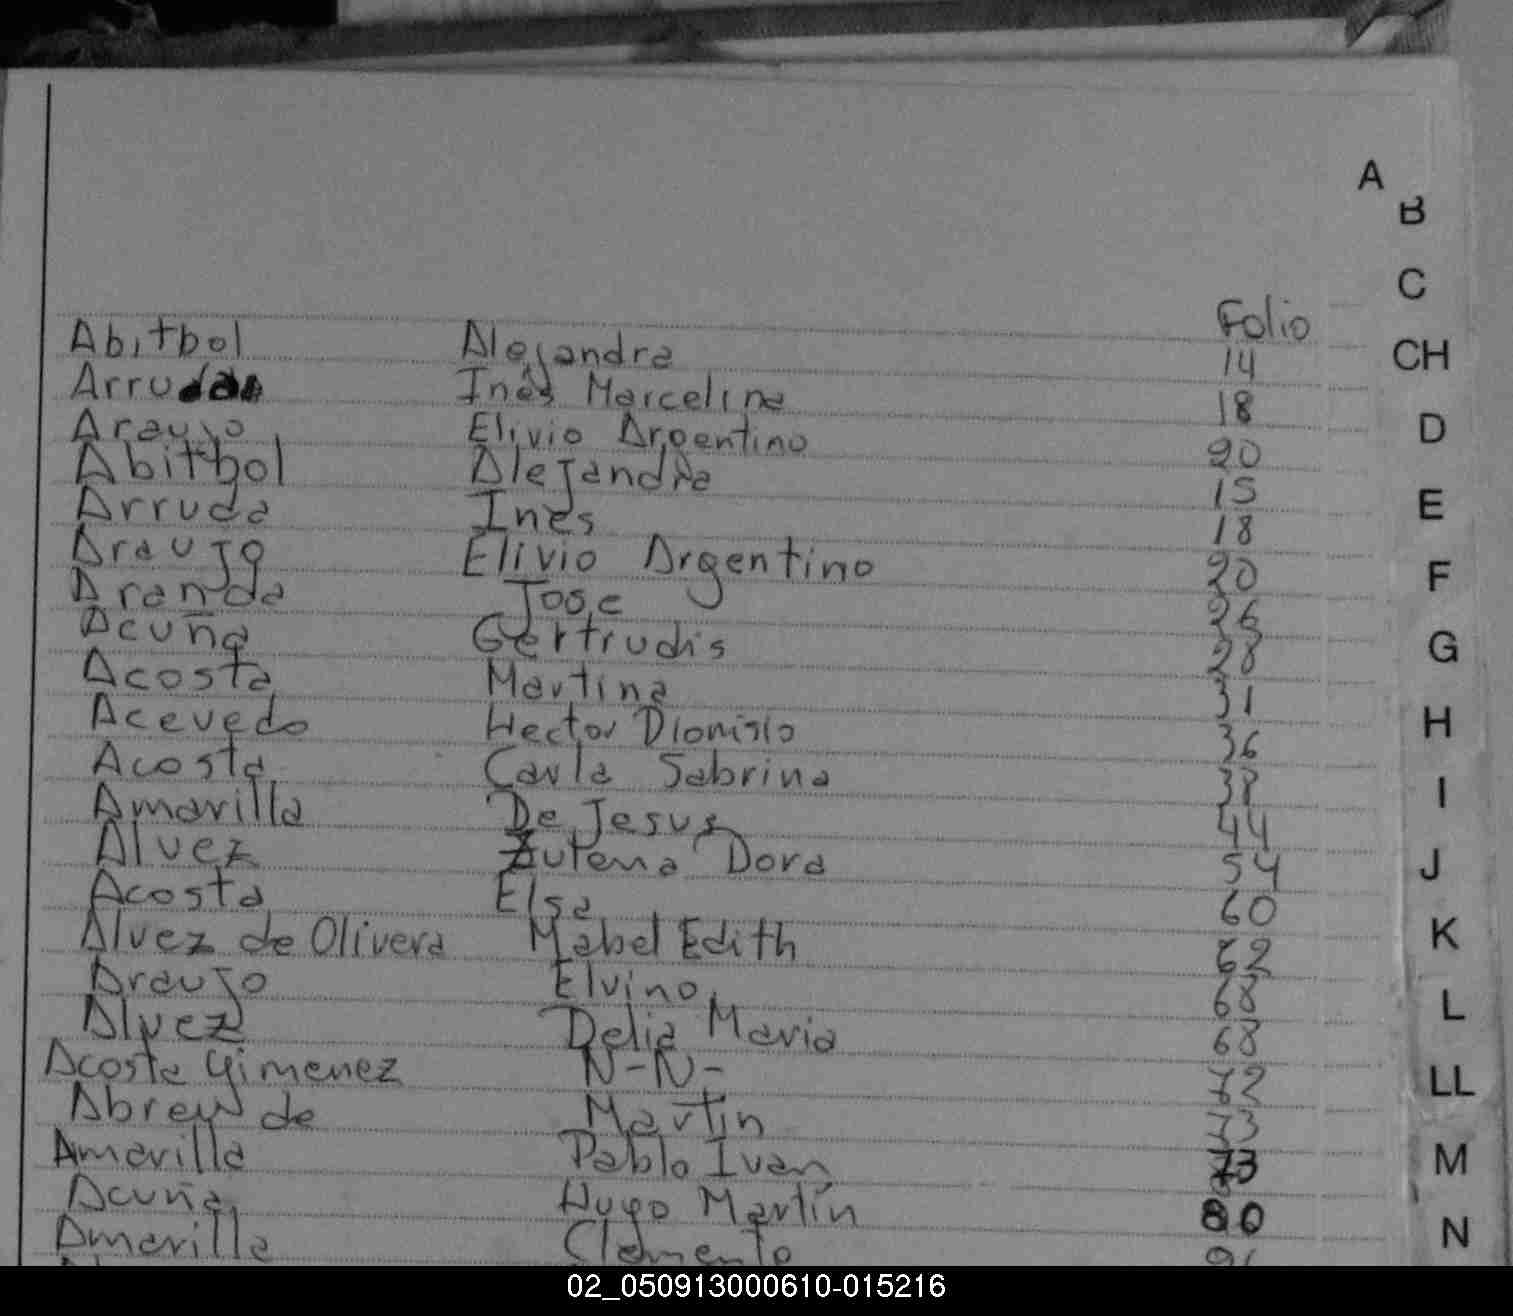 A
B
C
CH
D
E
F
G
H
I
J
K
L
LL
M
N
Folio
Abitbol Alejandra 14
Arruda Inés Marcelina 18
Araujo Elivio Argentino 20
Abitbol Alejandra 15
Arruda Ines 18
Araujo Elivio Argentino 20
Aranda Jose 26
Acuña Gertrudis 28
Acosta Martina 31
Acevedo Hector Dionisio 36
Acosta Carla Sabrina 38
Amarilla De Jesus 44
Alvez Zulema Dora 54
Acosta Elsa 60
Alvez de Olivera Mabel Edith 62
Araujo Elvino 68
Alvez Delia Maria 68
Acosta Gimenez N-N- 72
Abreu de Martin 73
Amarilla Pablo Ivan 73
Acuña Hugo Martín 80
Amarilla Clemente
02_050913000610-015216